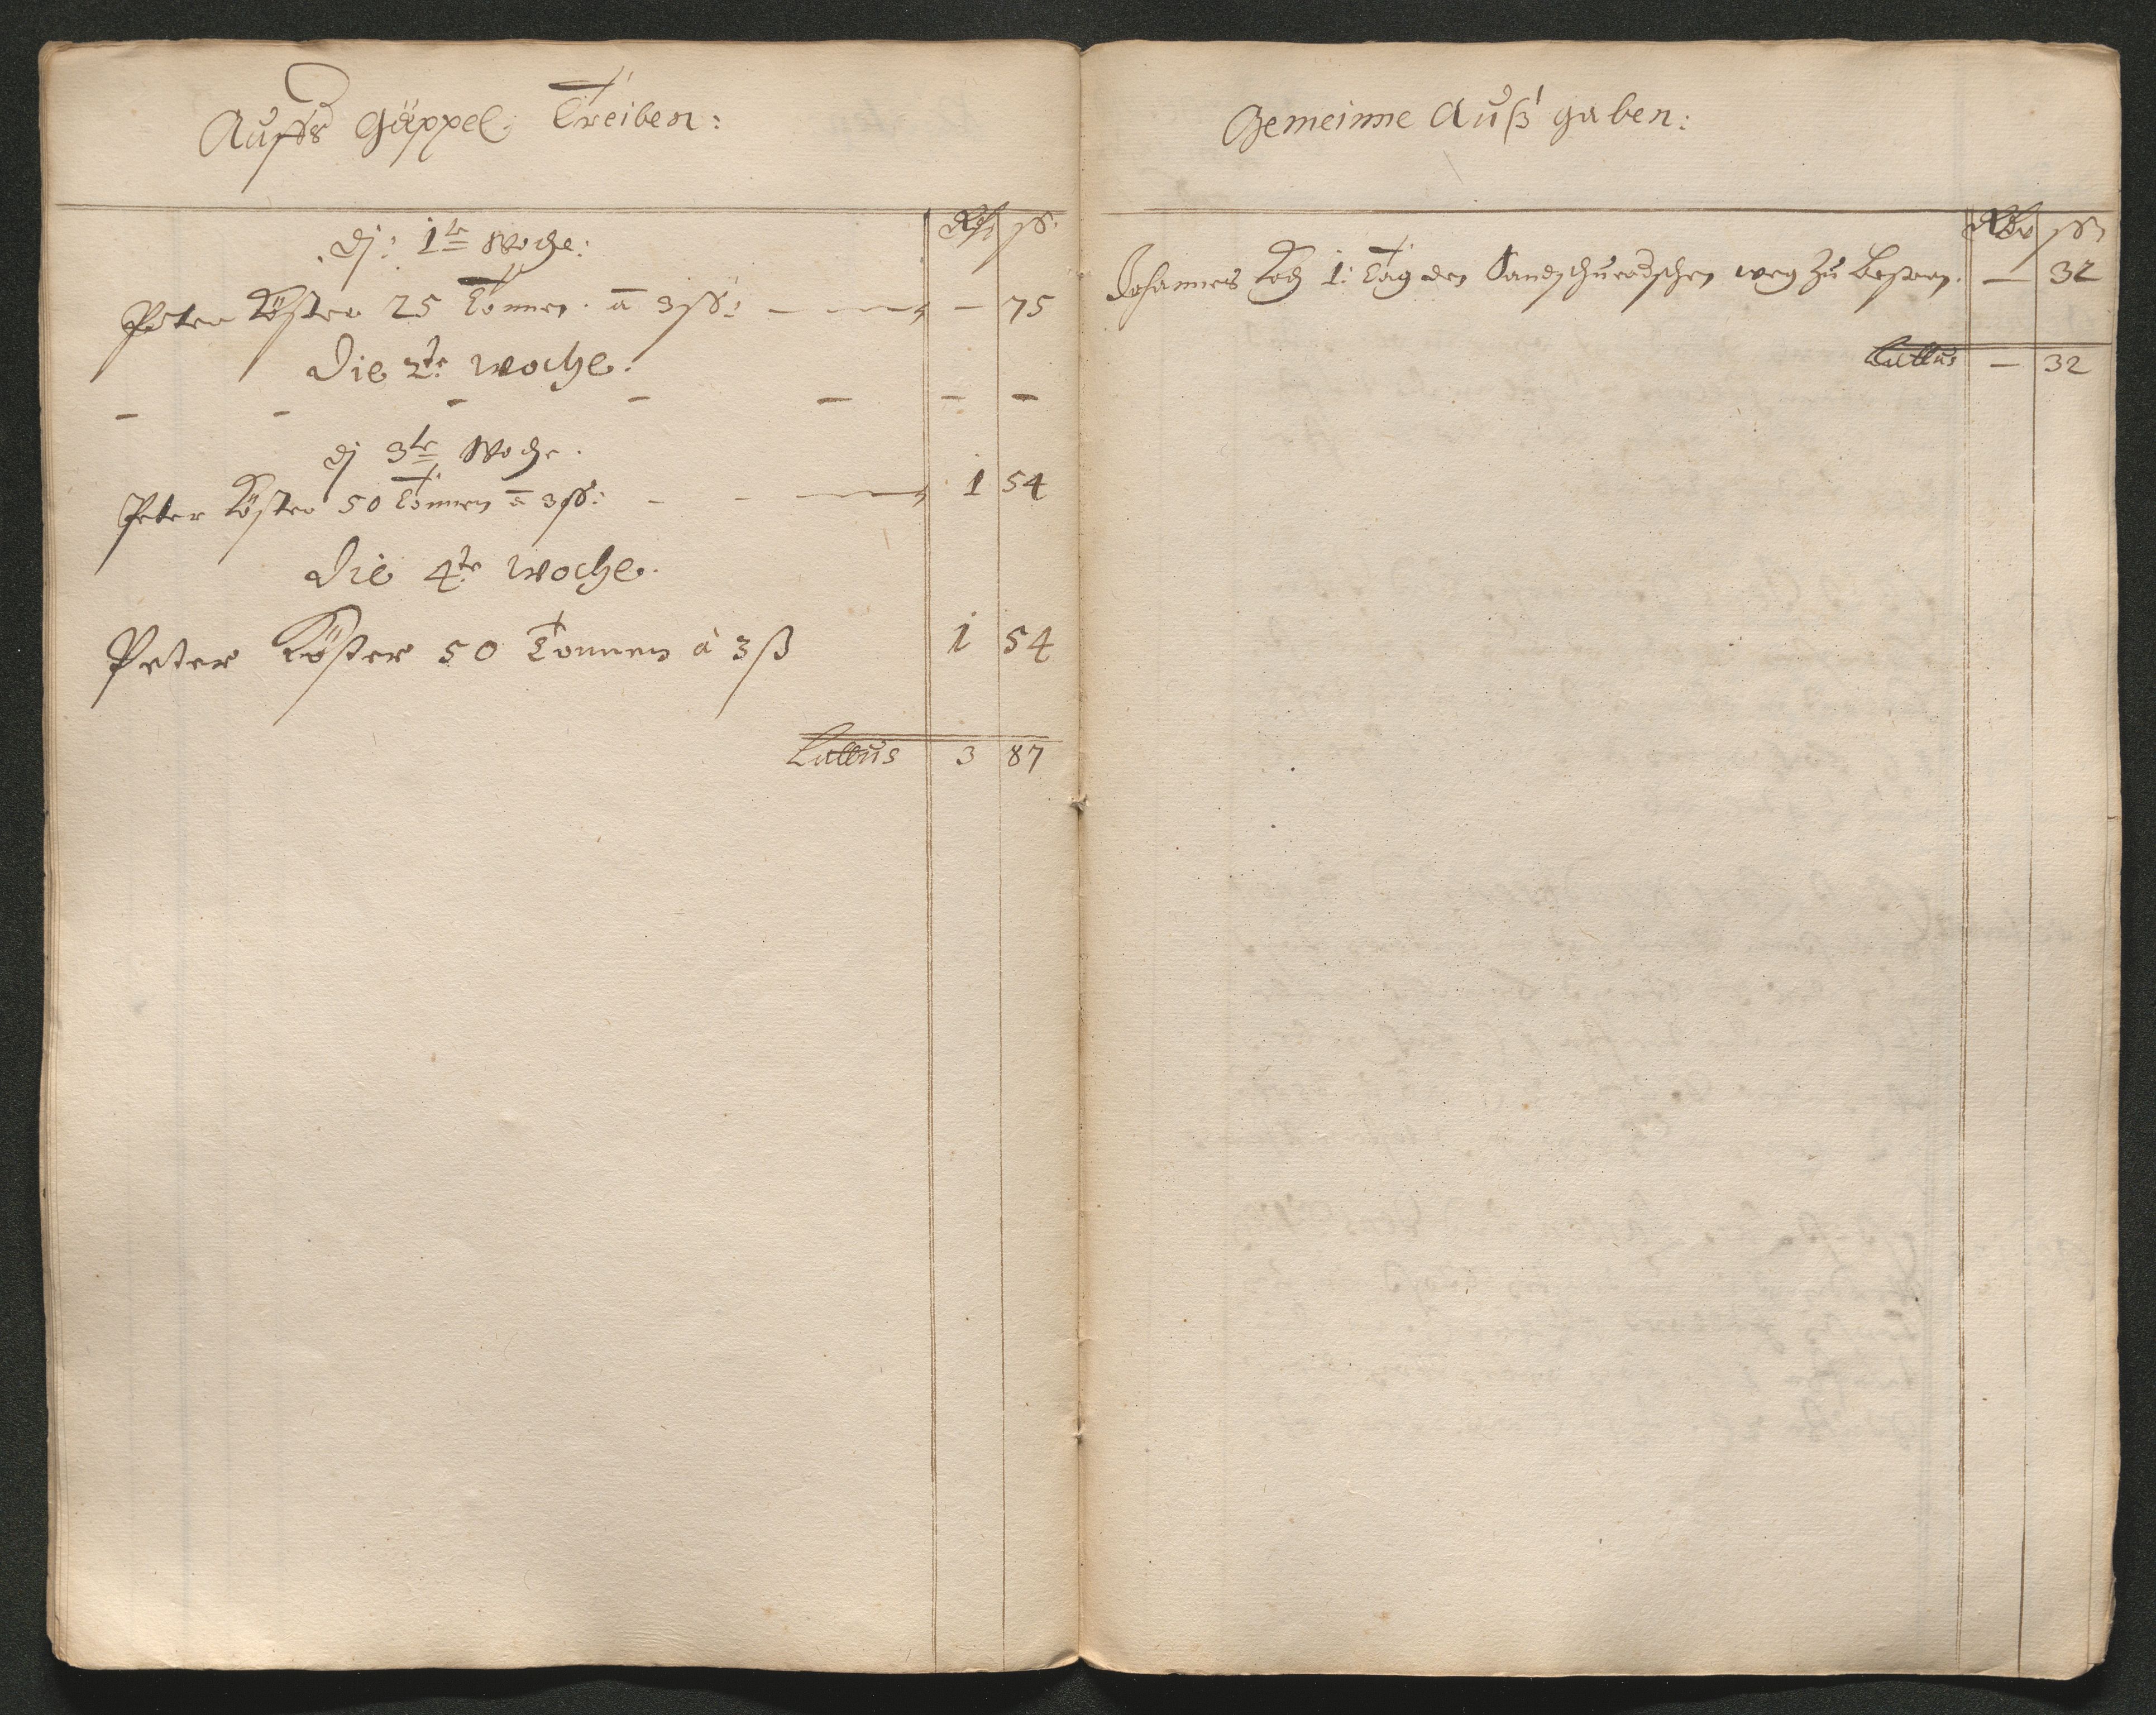 Auffs Gäppel Treiben:
Rthr ß:
Dj: 1te Woche:
Peter Köster 25 Tonnen. â 3 ß: — — — 75
Die 2te Woche.
— — — — — — —
Dj 3te Woche.
Peter Köster 50 Tonnen â 3 ß: — — — 1 54
Die 4te Woche.
Peter Köster 50 Tonnen à 3 ß 1 54
Lattus 3 87
Gemeinne Auß gaben:
Rthr ß
Johannes Koch 1: Tag den weg zu — 32
Lattus — 32